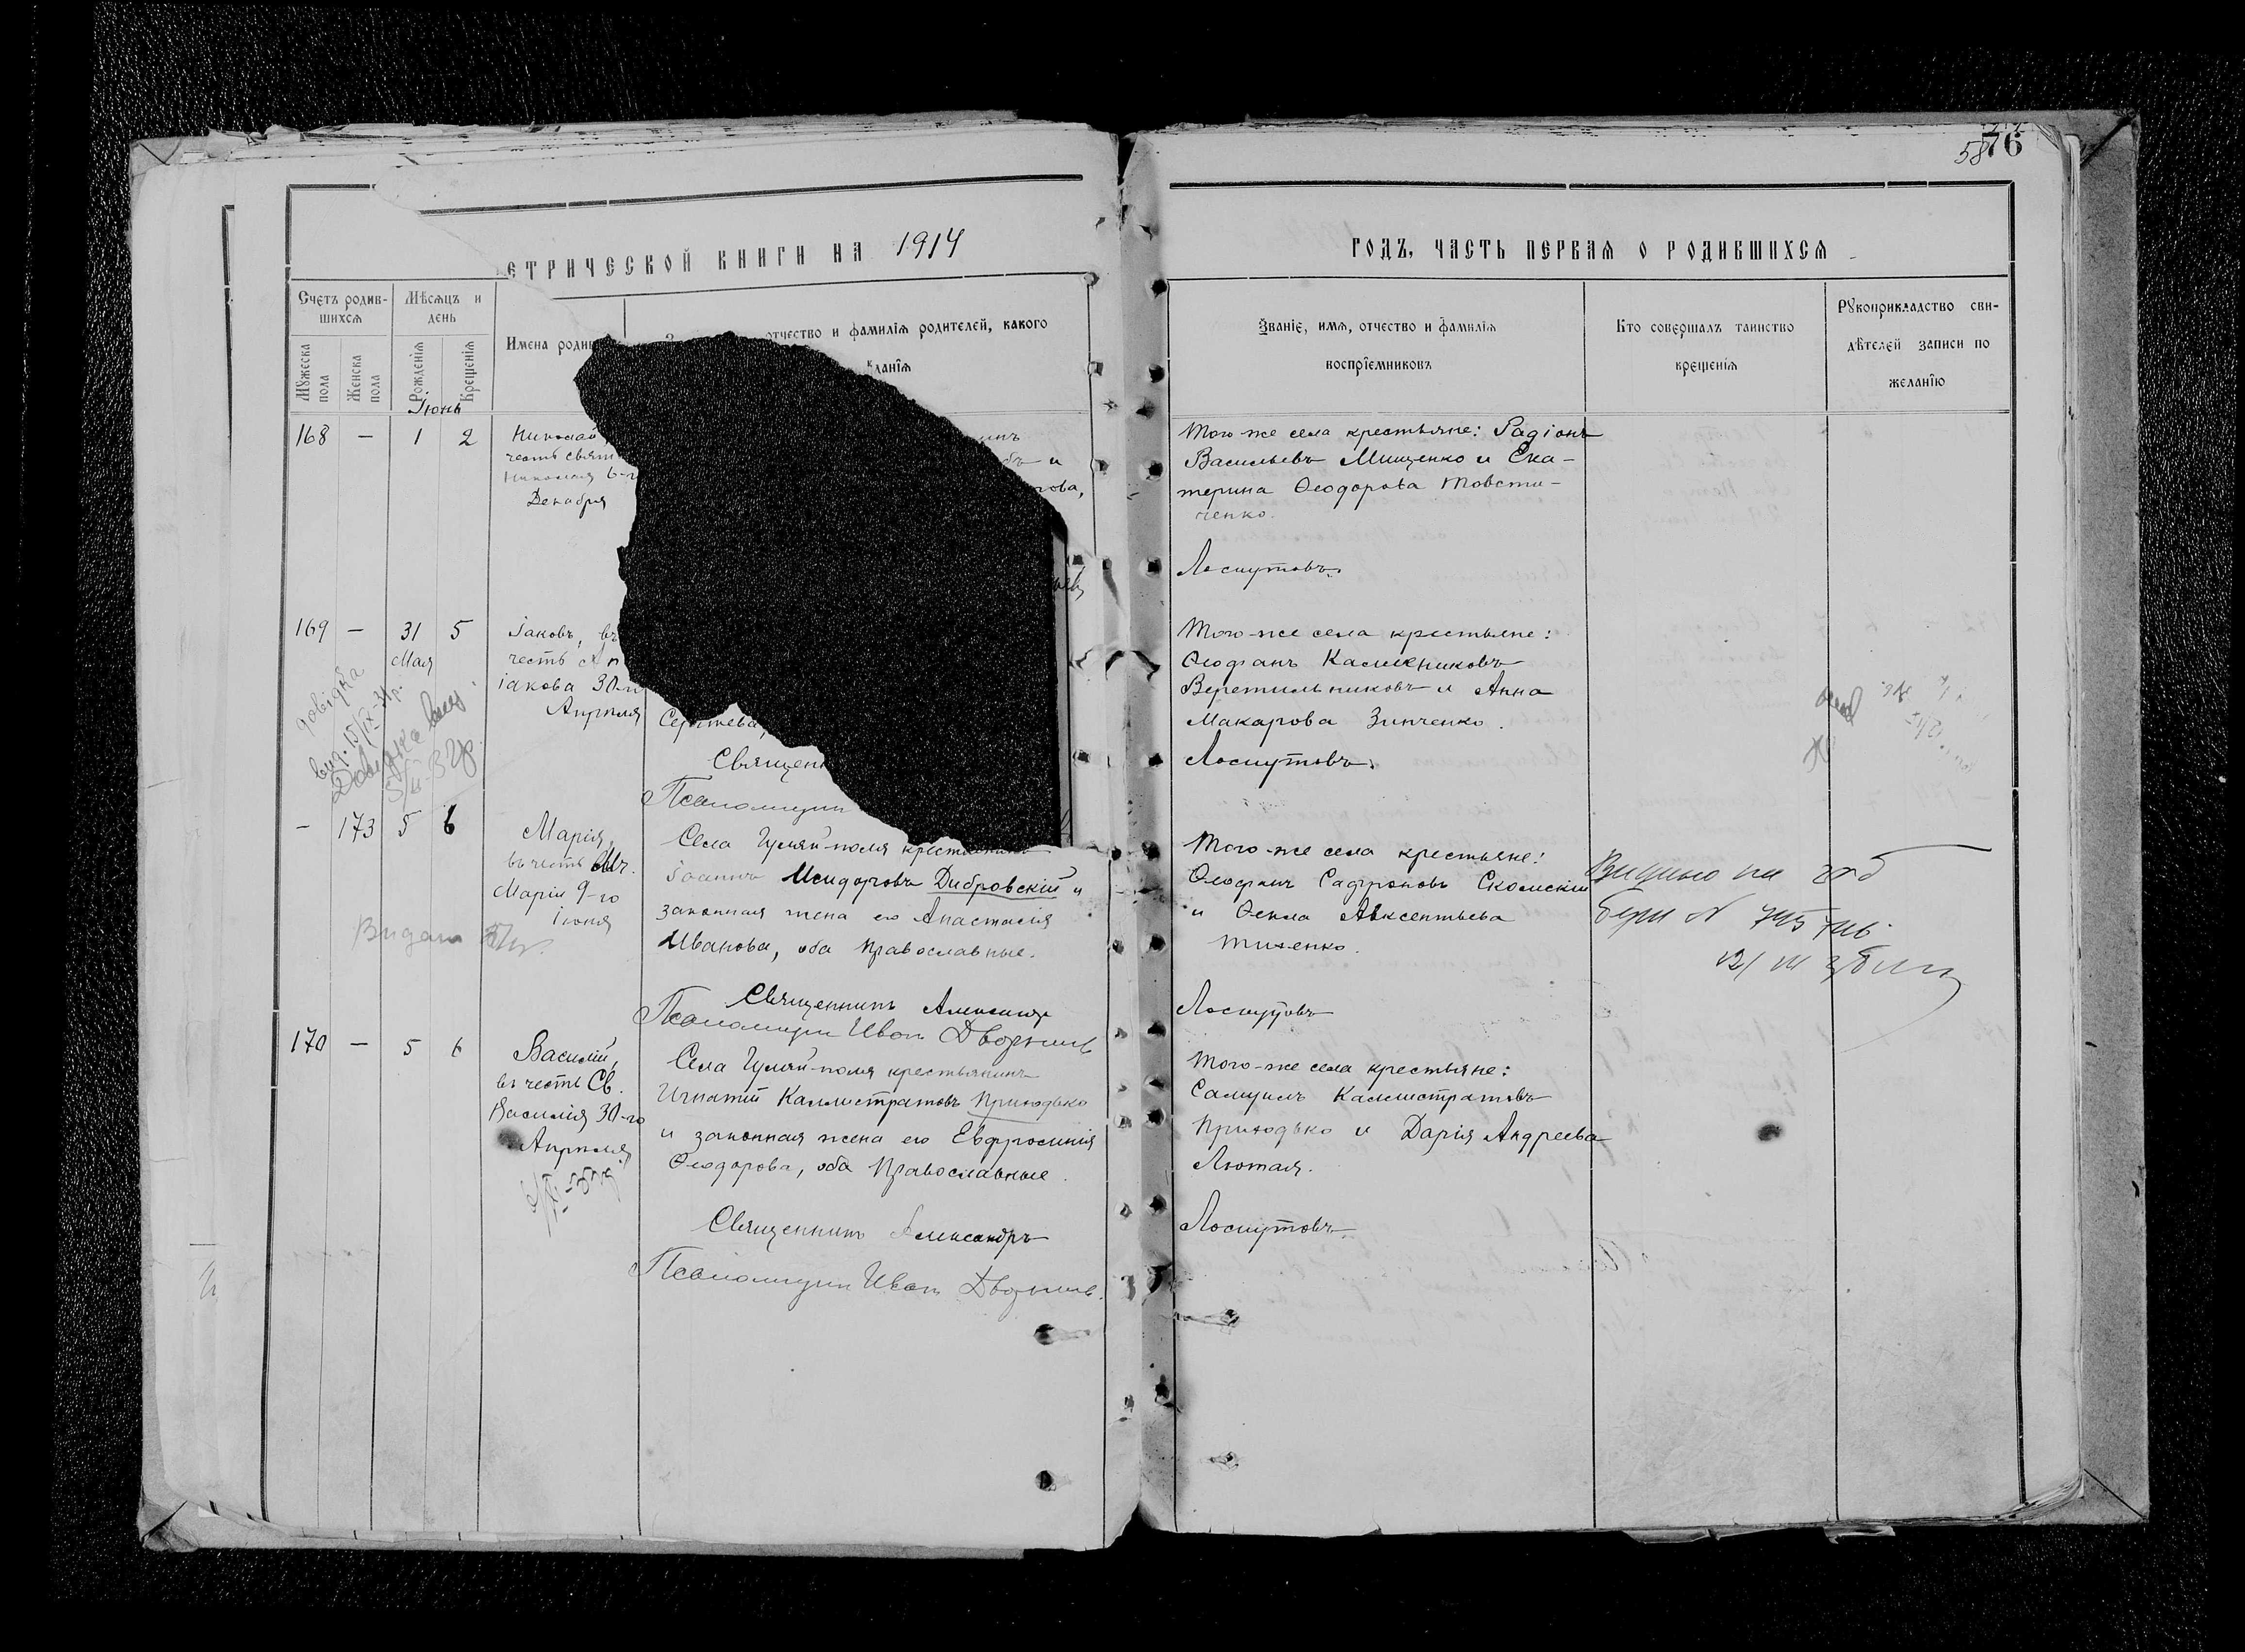 76
58
ЕТРИЧЕСКОЙ КНИГИ НА 1914
ГОДЪ, ЧАСТЬ ПЕРВАЯ О РОДИВШИХСЯ
Счетъ родив-
шихся
Мѣсяцъ и
день
Мужеска
пола
Женска
пола
Рожденія
Крещенія
Имена роди
отчество и фамилія родителей, какого
Званіе, имя, отчество и фамилія
воспріемниковъ
Кто совершалъ таинство
крещенія
Рукоприкладство сви-
дѣтелей записи по
желанію
Іюнь
168 — 1 2
Николай
честь свят
Николая 6-г
Декабря
Того-же села крестьяне: Радіонъ
Васильевъ Мищенко и Ека-
терина Ѳеодорова Товсти-
ченко.
Лоскутовъ.
169 — 31 5
Мая
Іаковъ, въ
честь Ап
Іакова 30-г
Апрѣля
Сергѣева,
Священ
Псаломщик
Того-же села крестьяне:
Ѳеофанъ Калиниковъ
Веретильниковъ и Анна
Макарова Зинченко.
Лоскутовъ.
— 173 5 6
Марія,
въ честь Мч.
Маріи 9-го
Іюня
Села Гуляй-поля крестьянинъ
Іоаннъ Исидоровъ Дибровскій и
законная жена его Анастасія
Иванова, оба Православные.
Священникъ Александръ
Псаломщик Иван
Того-же села крестьяне:
Ѳеофанъ Сафроновъ
и Ѳекла Авксентьева
Тишенко.
Лоскутовъ
170 — 5 6
Василій,
въ честь Св.
Василія 30-го
Апрѣля
Села Гуляй-поля крестьянинъ
Игнатій Каллистратовъ Приходько
и законная жена его Евфросинія
Ѳеодорова, оба Православные.
Священникъ Александръ
Псаломщик Иван
Того-же села крестьяне:
Самуилъ Каллистратовъ
Приходько и Дарія Андреева
Лютая.
Лоскутовъ.